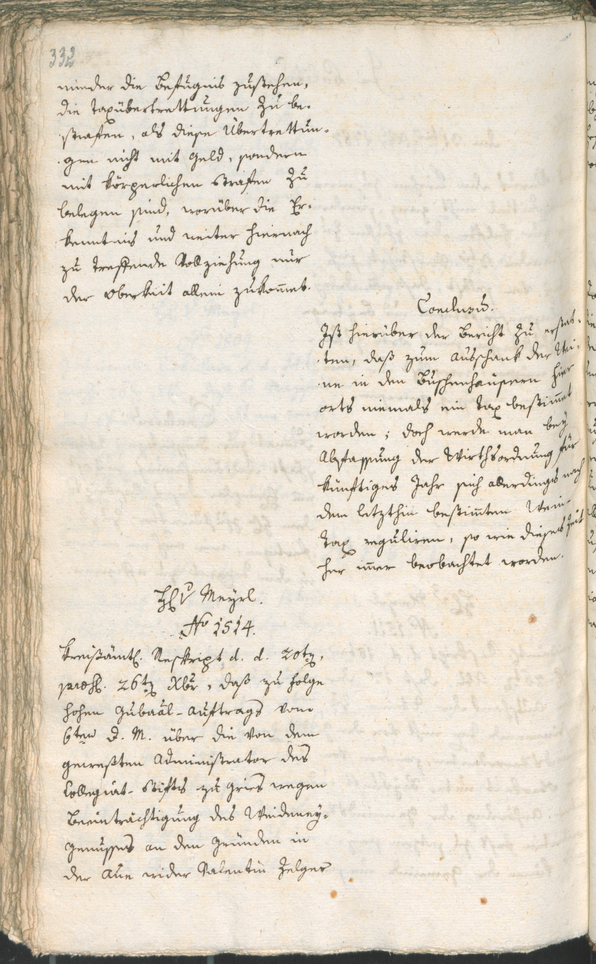 332
minder die Befugnis zustehen,
die Taxübertrettungen zu be-
straffen, als diese Übertrettun-
gen nicht mit Geld, sondern
mit körperlichen Straffen zu
belegen sind, worüber die Er-
kenntnis und weiter hiernach
zu treffende Vollziehung nur
der Oberkeit allein zukommet.
Conclusū.
Ist hierüber der Bericht zu erstat-
ten, daß zum Ausschank der Wei-
ne in den Buschenhäusern hier
orts niemals ein Tax bestimmt
worden; doch werde man bey
Abfassung der Wirthsordnung für
künftiges Jahr sich allerdings nach
dem letzthin bestimmten Wein-
tax reguliren, so wie dieses seit
her immer beobachtet worden.
H. v Meyrl.
No 1514.
Kreisämtl. Reskript d. d. 20ten,
præs. 26ten Xbr, daß zu folge
hohen Gubaāl-Auftrags vom
6ten d. M. über die von dem
gewesten Administrator des
Collegiat-Stifts zu Gries wegen
Beeinträchtigung des Weideney-
genusses an den Gründen in
der Aue wider Valentin Zelger